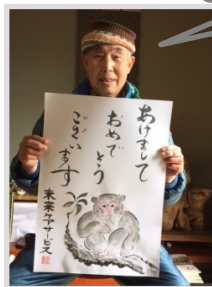 あけまして
おめでとう
ございます
未来ケアサービス